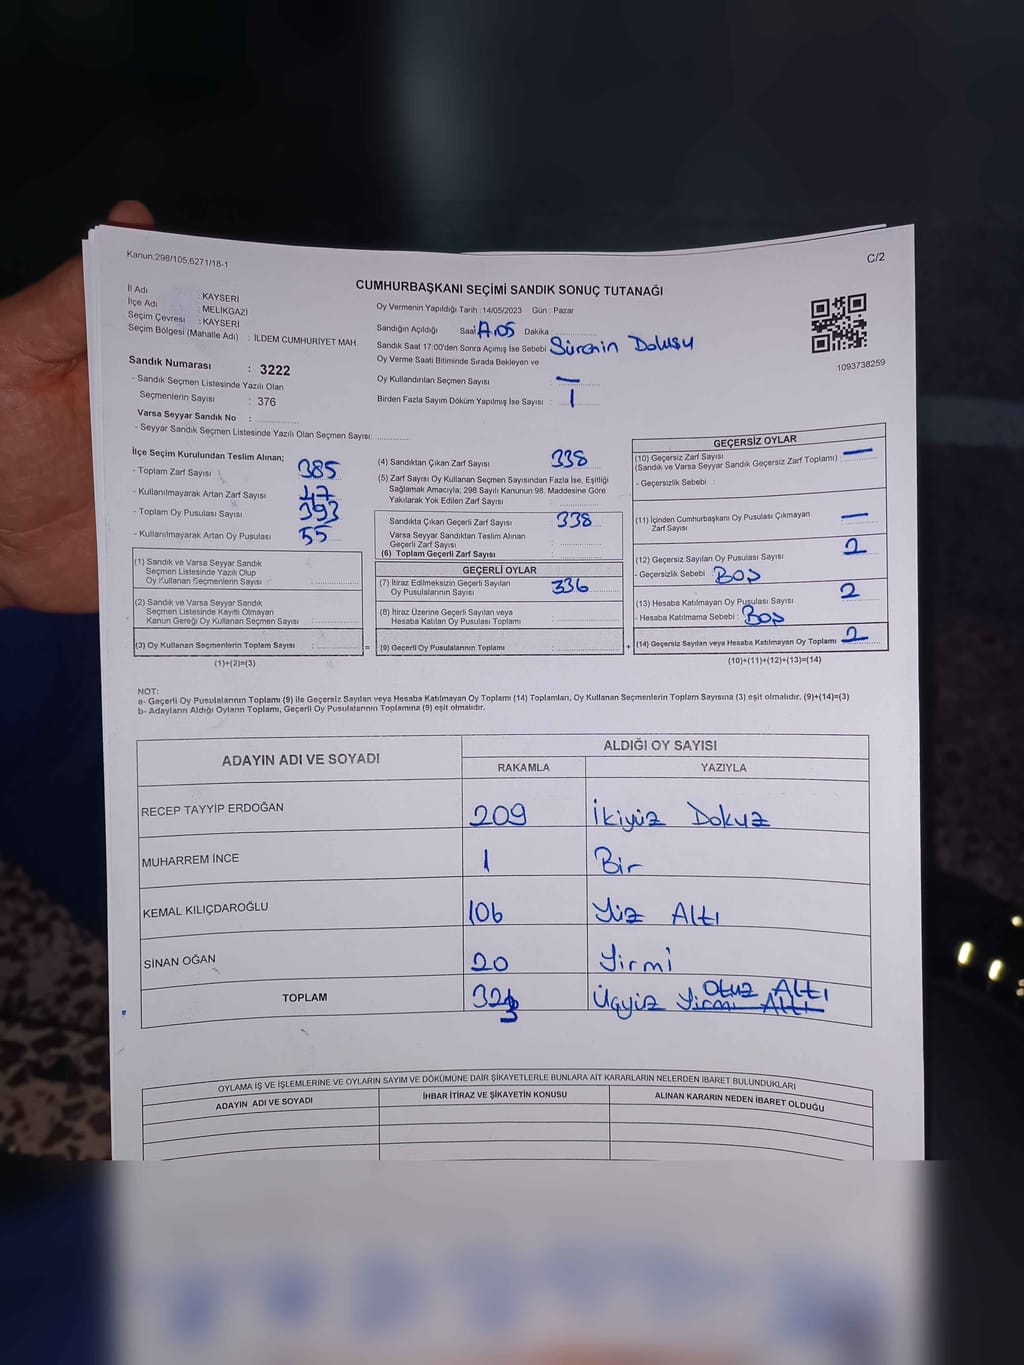 Kanun.298/105,6271/18-1
C/2
CUMHURBAŞKANI SEÇİMİ SANDIK SONUÇ TUTANAĞI
İl Adı : KAYSERİ
İlçe Adı : MELİKGAZİ
Seçim Çevresi : KAYSERİ
Seçim Bölgesi (Mahalle Adı) : İLDEM CUMHURİYET MAH.
Sandık Numarası : 3222
- Sandık Seçmen Listesinde Yazılı Olan
Seçmenlerin Sayısı : 376
Varsa Seyyar Sandık No :
- Seyyar Sandık Seçmen Listesinde Yazılı Olan Seçmen Sayısı:
Oy Vermenin Yapıldığı Tarih :14/05/2023 Gün : Pazar
Sandığın Açıldığı Saat Dakika
Sandık Saat 17:00'den Sonra Açımış İse Sebebi Sürenin Dolusu
Oy Verme Saati Bitiminde Sırada Bekleyen ve
Oy Kullandırılan Seçmen Sayısı —
Birden Fazla Sayım Döküm Yapılmış İse Sayısı 1
1093738259
İlçe Seçim Kurulundan Teslim Alınan;
- Toplam Zarf Sayısı 385
- Kullanılmayarak Artan Zarf Sayısı 47
- Toplam Oy Pusulası Sayısı 393
- Kullanılmayarak Artan Oy Pusulası 55
(1) Sandık ve Varsa Seyyar Sandık
Seçmen Listesinde Yazılı Olup
Oy Kullanan Seçmenlerin Sayısı :
(2) Sandık ve Varsa Seyyar Sandık
Seçmen Listesinde Kayıtlı Olmayan
Kanun Gereği Oy Kullanan Seçmen Sayısı :
(3) Oy Kullanan Seçmenlerin Toplam Sayısı : =
(1)+(2)=(3)
(4) Sandıktan Çıkan Zarf Sayısı 338
(5) Zarf Sayısı Oy Kullanan Seçmen Sayısından Fazla İse, Eşitliği
Sağlamak Amacıyla; 298 Sayılı Kanunun 98. Maddesine Göre
Yakılarak Yok Edilen Zarf Sayısı :
Sandıkta Çıkan Geçerli Zarf Sayısı 338
Varsa Seyyar Sandıktan Teslim Alınan
Geçerli Zarf Sayısı
(6) Toplam Geçerli Zarf Sayısı
GEÇERLİ OYLAR
(7) İtiraz Edilmeksizin Geçerli Sayılan
Oy Pusulalarının Sayısı 336
(8) İtiraz Üzerine Geçerli Sayılan veya
Hesaba Katılan Oy Pusulası Toplamı :
(9) Geçerli Oy Pusulalarının Toplamı : +
GEÇERSİZ OYLAR
(10) Geçersiz Zarf Sayısı
(Sandık ve Varsa Seyyar Sandık Geçersiz Zarf Toplamı) : —
- Geçersizlik Sebebi :
(11) İçinden Cumhurbaşkanı Oy Pusulası Çıkmayan
Zarf Sayısı —
(12) Geçersiz Sayılan Oy Pusulası Sayısı 2
- Geçersizlik Sebebi : Boş
(13) Hesaba Katılmayan Oy Pusulası Sayısı 2
- Hesaba Katılmama Sebebi : Boş
(14) Geçersiz Sayılan veya Hesaba Katılmayan Oy Toplamı 2
(10)+(11)+(12)+(13)=(14)
NOT:
a- Geçerli Oy Pusulalarının Toplamı (9) ile Geçersiz Sayılan veya Hesaba Katılmayan Oy Toplamı (14) Toplamları, Oy Kullanan Seçmenlerin Toplam Sayısına (3) eşit olmalıdır. (9)+(14)=(3)
b- Adayların Aldığı Oyların Toplamı, Geçerli Oy Pusulalarının Toplamına (9) eşit olmalıdır.
ADAYIN ADI VE SOYADI
ALDIĞI OY SAYISI
RAKAMLA YAZIYLA
RECEP TAYYİP ERDOĞAN 209 İkiyüz Dokuz
MUHARREM İNCE 1 Bir
KEMAL KILIÇDAROĞLU 106 Yüz Altı
SİNAN OĞAN 20 Yirmi
TOPLAM Üçyüz Yirmi Altı Otuz Altı
OYLAMA İŞ VE İŞLEMLERİNE VE OYLARIN SAYIM VE DÖKÜMÜNE DAİR ŞİKAYETLERLE BUNLARA AİT KARARLARIN NELERDEN İBARET BULUNDUKLARI
ADAYIN ADI VE SOYADI İHBAR İTİRAZ VE ŞİKAYETİN KONUSU ALINAN KARARIN NEDEN İBARET OLDUĞU